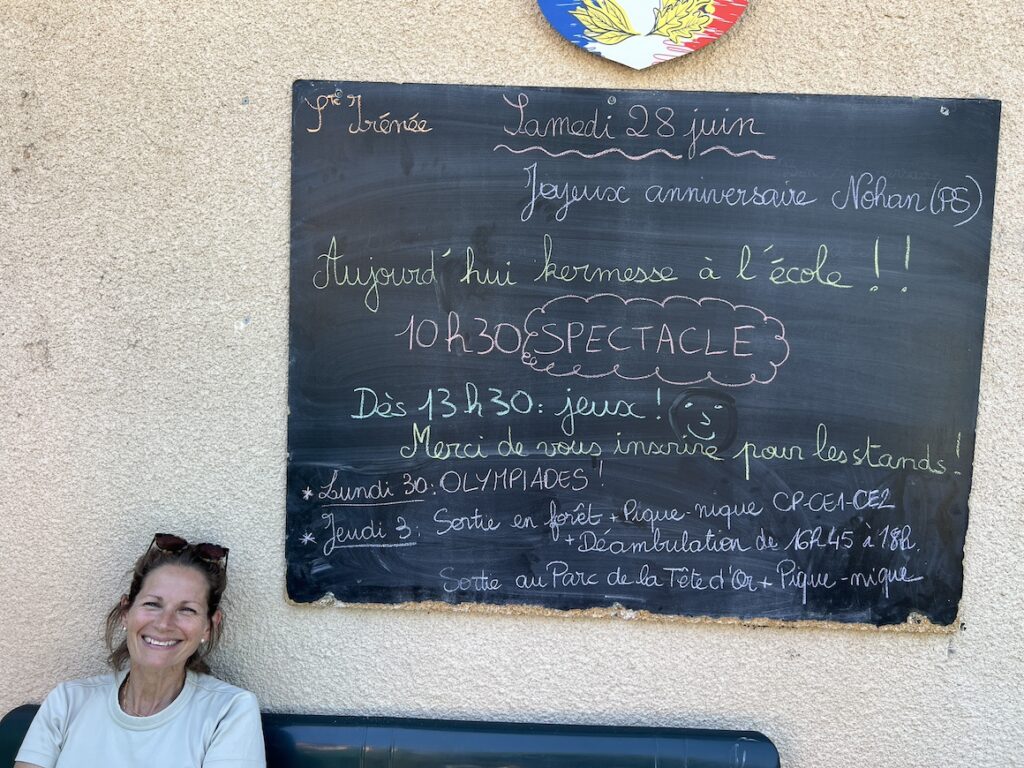 Ste Irénée
Samedi 28 juin
Joyeux anniversaire Nohan (PS)
Aujourd'hui kermesse à l'école !!
10h30 SPECTACLE
Dès 13h30 : jeux !
Merci de vous inscrire pour les stands !
* Lundi 30 : OLYMPIADES !
* Jeudi 3 : Sortie en forêt + Pique-nique CP-CE1-CE2
+ Déambulation de 16h45 à 18h.
Sortie au Parc de la Tête d'Or + Pique-nique